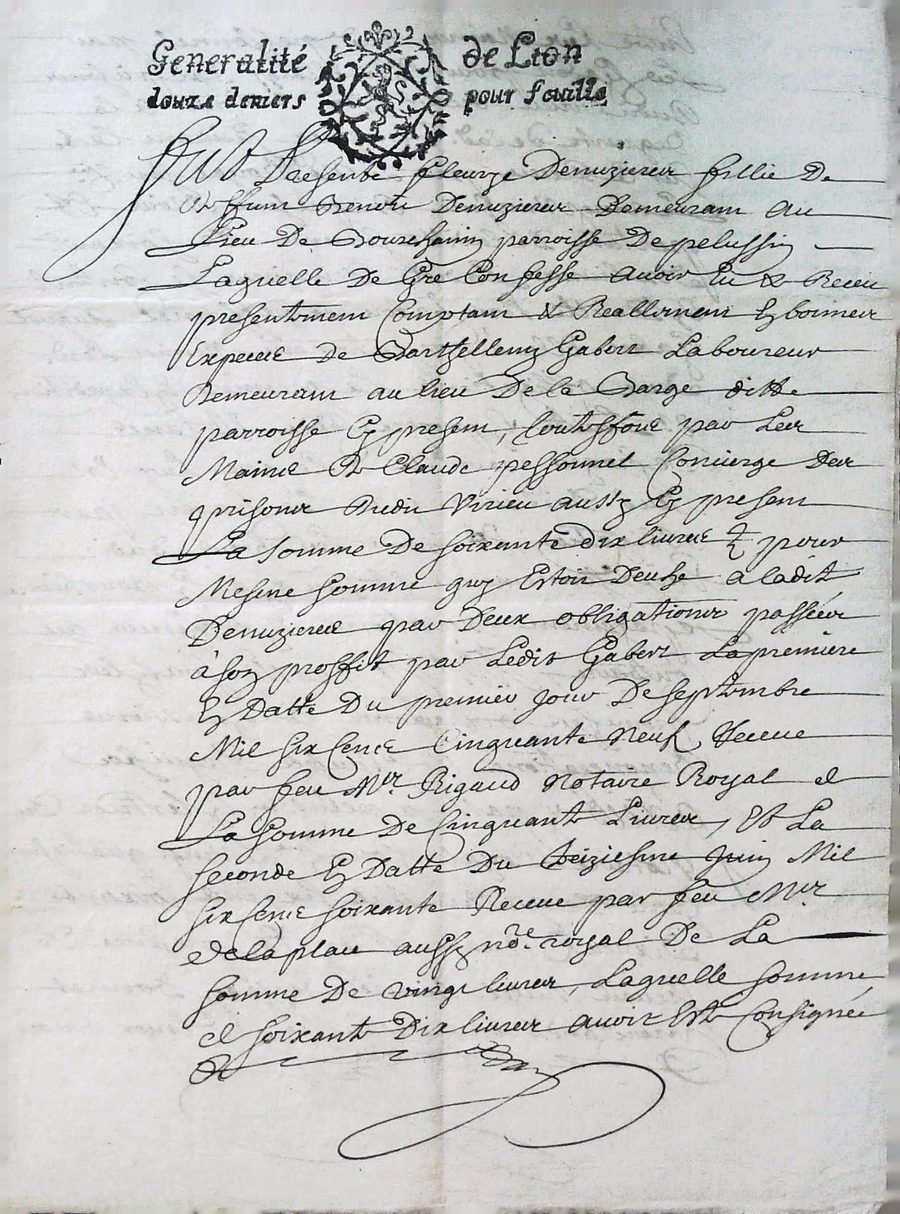 Generalité de Lion
douze deniers pour feuille
Presente Fleurye Denuzieres fillie de
Deffunt Benoit Denuzieres Demeurant au
Lieu De Bourchanin parroisse De pelussin
Laquelle De Gré Confesse avoir Eu & Receu
presentement Comptant & Reallement En bonnes
Especes De Barthellemy Gabert Laboureur
Demeurant au lieu De la Barge ditte
parroisse Cy present, par Les
Mains De Claude pessonnel Concierge Des
prisons Dudit Virieu aussy Cy present
La somme De soixante dix livres pour
Mesme somme quy Estoit Deube a ladite
Denuziere par Deux obligations passées
à son proffit par Ledit Gabert La premiere
En Datte Du premier jour De septembre
Mil six Cens Cinquante Neuf Receue
par feu Mr Rigaud Notaire Royal de
La somme De Cinquante Livres, Et La
seconde En Datte Du seiziesme Juin Mil
six Cens soixante Receue par feu Mr
Delaplace aussy nore royal De La
somme De vingt livres, Laquelle somme
de soixante Dix livres avoit Esté Consignée